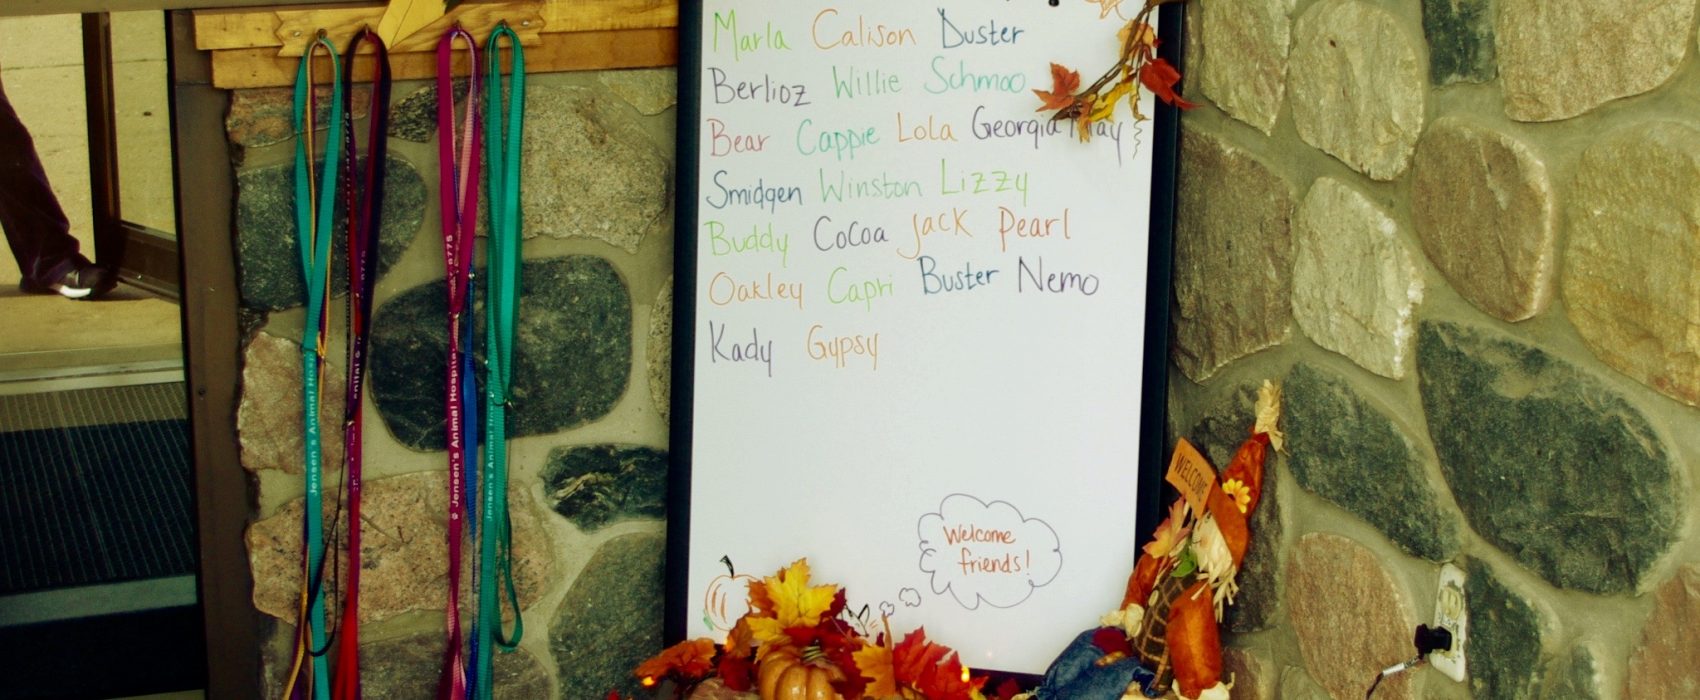 Marla Calison Duster
Berlioz Willie Schmoo
Bear Cappie Lola Georgia May
Smidgen Winston Lizzy
Buddy Cocoa Jack Pearl
Oakley Capri Buster Nemo
Kady Gypsy
Welcome
friends!
WELCOME
Jensen's Animal Hosp
Jensen's Animal Hospital
Jensen's Animal Hos